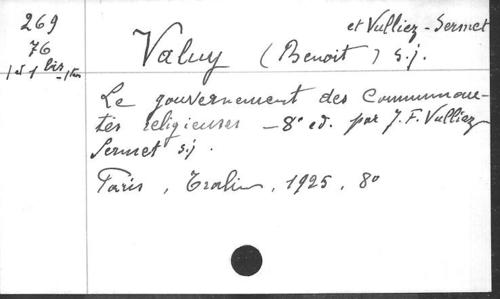 269
76
1 et 1 bis - 1 ter
et Vulliez-Sermet
Valuy (Benoit) s.j.
Le gouvernement des Communau-
tés religieuses - 8° ed. par J.F. Vulliez
Sermet s.j.
Paris, Tralin, 1925, 8°